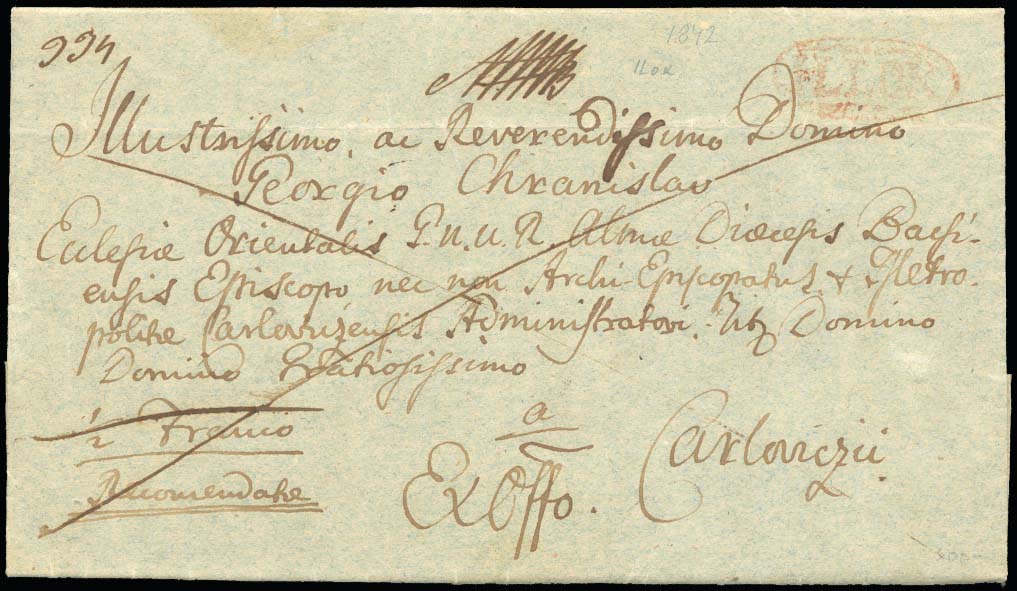 994
1842
ILOK
ILLOK
Illustrissimo, ac Reverendissimo Domino
Georgio Chranislav
Eclesiæ Orientalis G. n. u. R. Almæ Diœcesis Bacsi-
ensis Episcopo nec non Archi-Episcopatus & Metro-
politæ Carlovizensis Administratori. Domino
Domino Gratiosissimo
Franco
Recomendatæ
a
Ex Offo.
Carloviczii